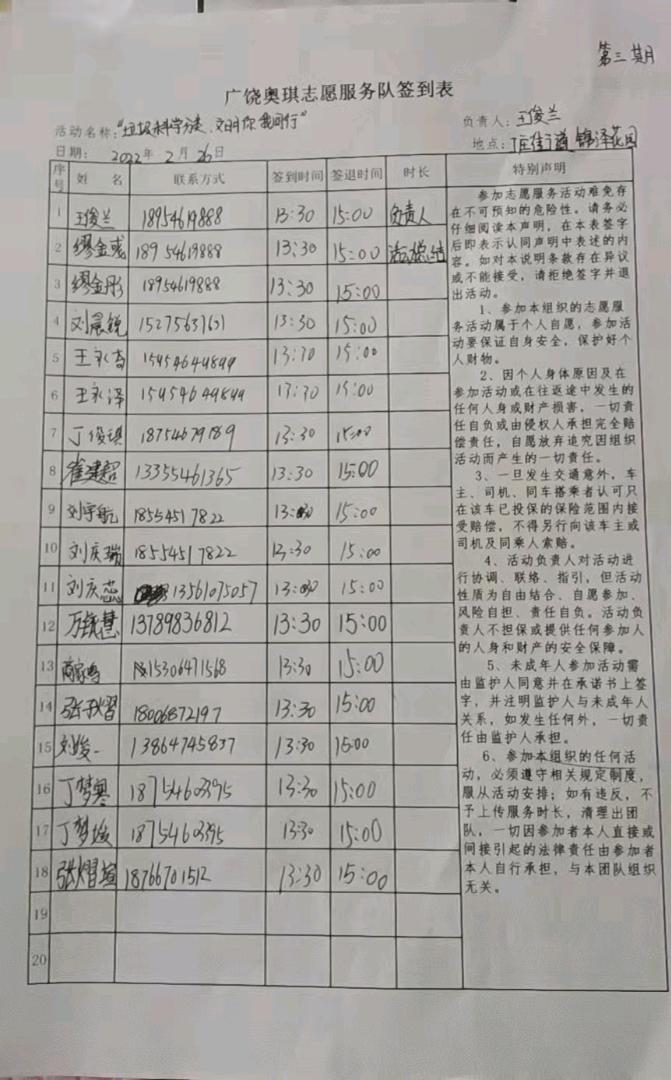 第三期
广饶奥琪志愿服务队签到表
活动名称:"垃圾科学分类、文明你我同行"
负责人:王俊兰
日期: 2022年 2月 26日
地点: 锦泽花园
序号 姓 名 联系方式 签到时间 签退时间 时长 特别声明
1 王俊兰 18954619888 13:30 15:00 负责人
2 缪金彧 18954619888 13:30 15:00 活动总结
3 缪金彤 18954619888 13:30 15:00
4 刘晨锐 15275637631 13:30 15:00
5 王永奇 13:30 15:00
6 王永泽 13:30 15:00
7 丁俊琪 18754679189 13:30 15:00
8 崔建超 13355461365 13:30 15:00
9 刘宇航 18554517822 13:30 15:00
10 刘庆瑞 18554517822 13:30 15:00
11 刘庆蕊 13561075057 13:30 15:00
12 13789836812 13:30 15:00
13 15306471568 13:30 15:00
14 18006872197 13:30 15:00
15 刘俊一 13864745837 13:30 15:00
16 丁梦寒 18754603395 13:30 15:00
17 丁梦媛 18754603395 13:30 15:00
18 张熠萱 18766701512 13:30 15:00
19
20
参加志愿服务活动难免存
在不可预知的危险性。请务必
仔细阅读本声明,在本表签字
后即表示认同声明中表述的内
容。如对本说明条款存在异议
或不能接受,请拒绝签字并退
出活动。
1、参加本组织的志愿服
务活动属于个人自愿,参加活
动要保证自身安全,保护好个
人财物。
2、因个人身体原因及在
参加活动或在往返途中发生的
任何人身或财产损害,一切责
任自负或由侵权人承担完全赔
偿责任,自愿放弃追究因组织
活动而产生的一切责任。
3、一旦发生交通意外,车
主、司机、同车搭乘者认可只
在该车已投保的保险范围内接
受赔偿,不得另行向该车主或
司机及同乘人索赔。
4、活动负责人对活动进
行协调、联络、指引,但活动
性质为自由结合、自愿参加、
风险自担、责任自负。活动负
责人不担保或提供任何参加人
的人身和财产的安全保障。
5、未成年人参加活动需
由监护人同意并在承诺书上签
字,并注明监护人与未成年人
关系,如发生任何外,一切责
任由监护人承担。
6、参加本组织的任何活
动,必须遵守相关规定制度,
服从活动安排;如有违反,不
予上传服务时长,清理出团
队,一切因参加者本人直接或
间接引起的法律责任由参加者
本人自行承担,与本团队组织
无关。